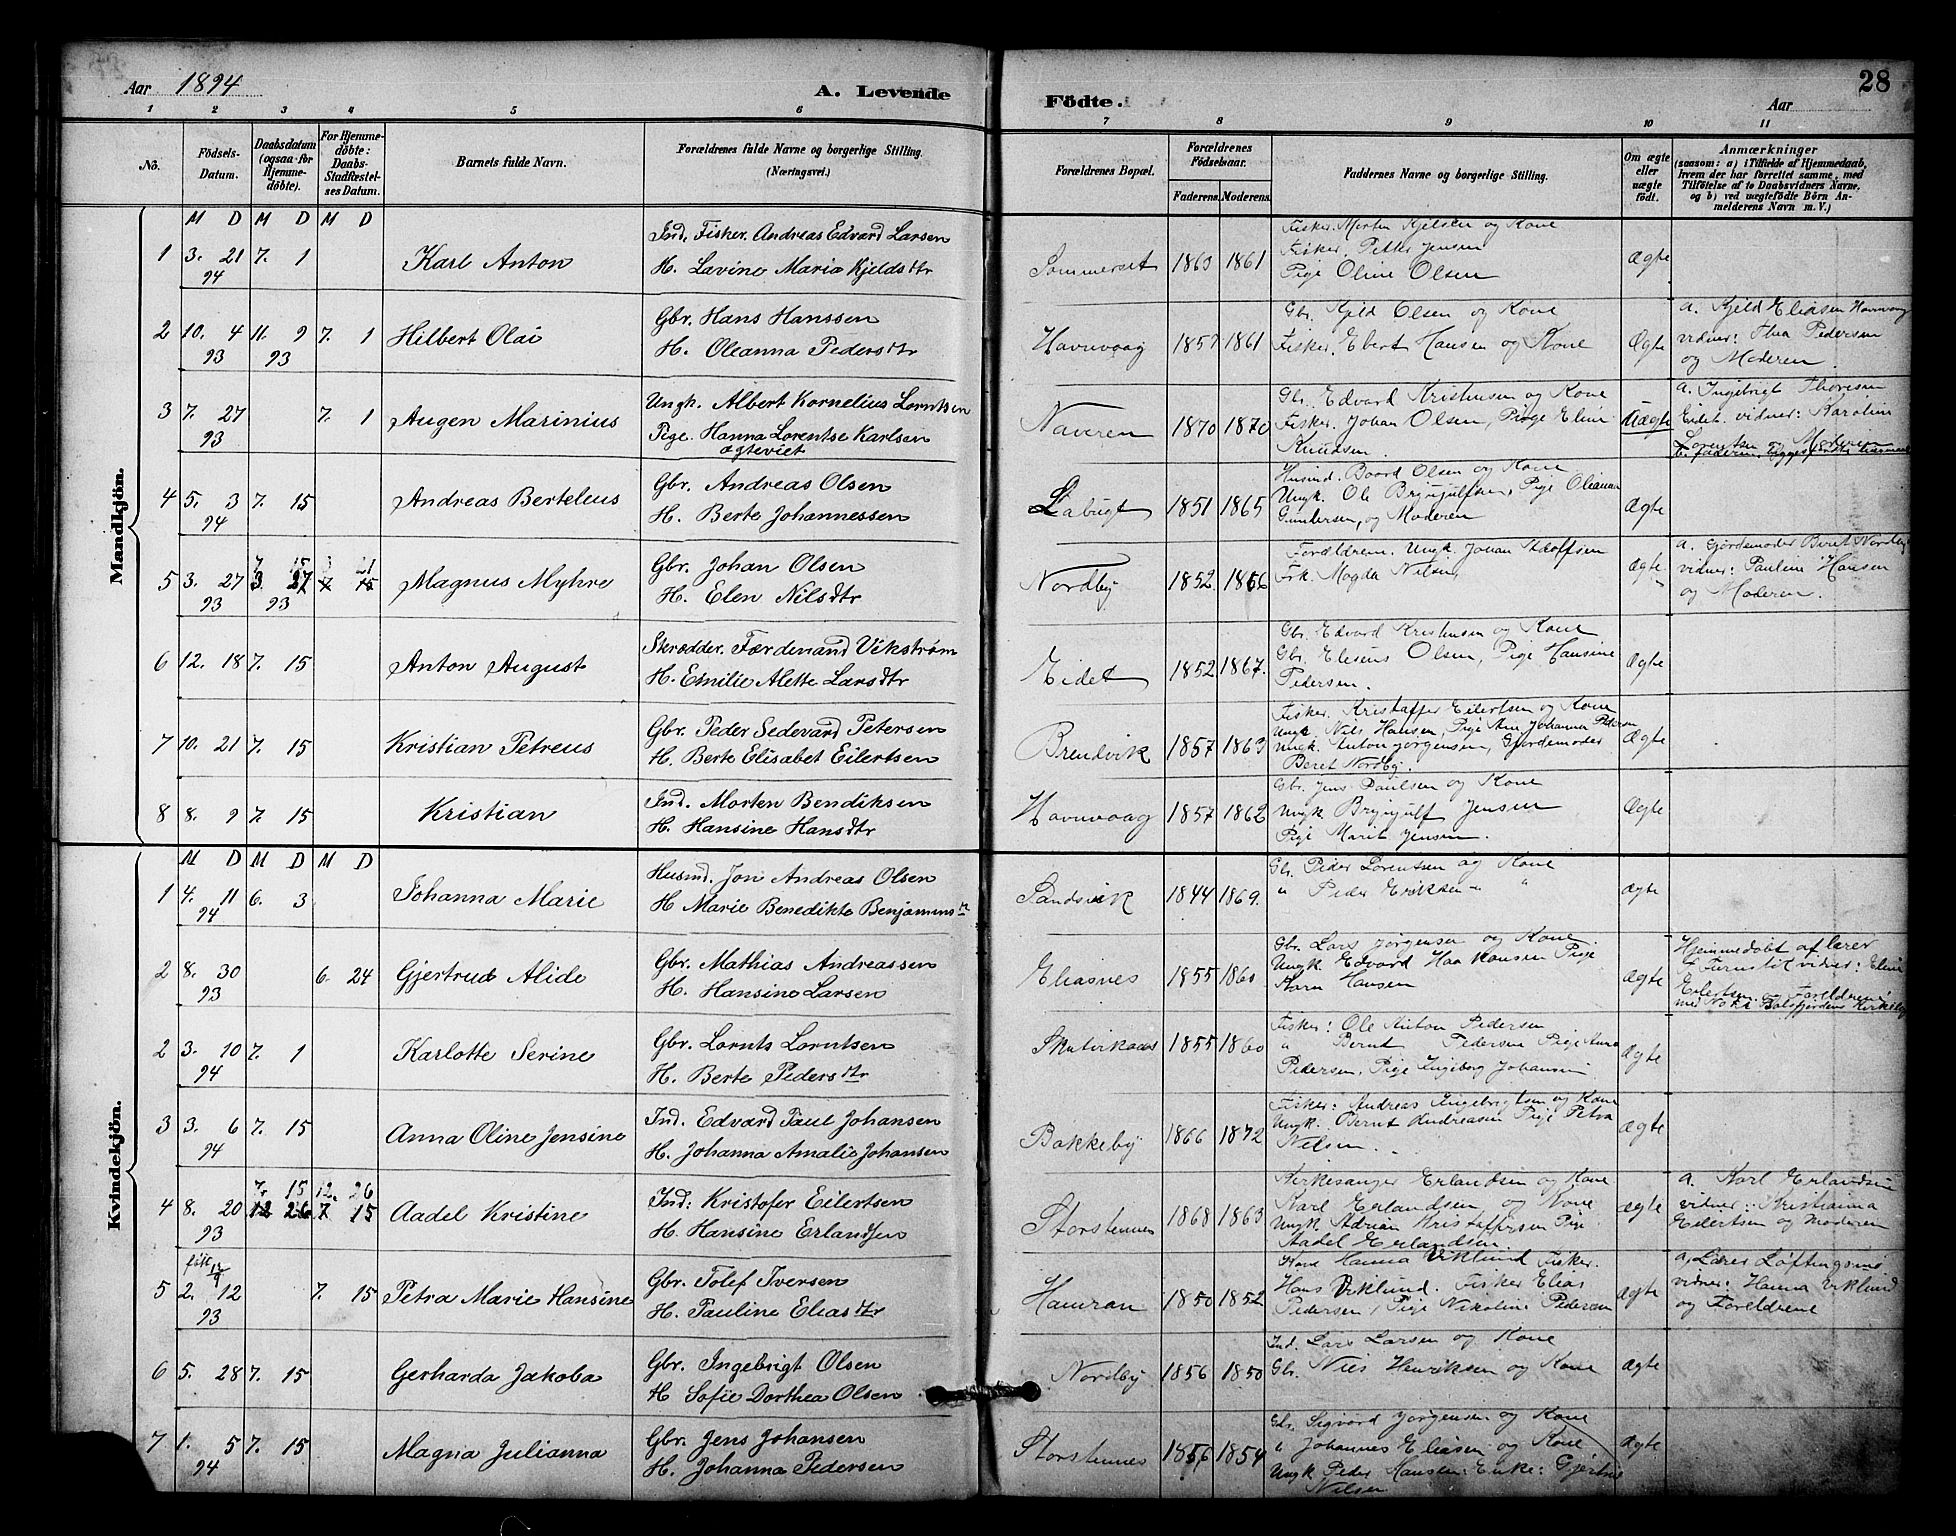 Aar 1894
A. Levende
Födte.
Aar
28
1 2 3 4 5 6 7 8 9 10 11
No.
Födsels-Datum.
Daabsdatum (ogsaa for Hjemmedöbte).
For Hjemmedöbte: Daabs-Stadfæstelses Datum.
Barnets fulde Navn.
Forældrenes fulde Navne og borgerlige Stilling. (Næringsvei.)
Forældrenes Bopæl.
Forældrenes Födselsaar.
Faderens. Moderens.
Faddernes Navne og borgerlige Stilling.
Om ægte eller uægte födt.
Anmærkninger
(saasom: a) i Tilfælde af Hjemmedaab,
hvem der har forrettet samme, med
Tilföielse af to Daabsvidners Navne,
og b) ved uægtefödte Börn Anmelderens Navn m. V.)
Mandkjön.
M D M D M D
1 3. 21 94 7. 1 Karl Anton
Ind. Fisker. Andreas Edvard Larsen
H. Lavine Maria Kjeldsdtr
Sommerset 1863 1861
Fisker. Morten Kjelsen og Kone
Fisker. Petter Jensen
Pige Oline Olsen
Ægte
2 10. 4 93 11. 9 93 7. 1 Hilbert Olai
Gbr. Hans Hanssen
H. Oleanna Pedersdtr
Havnvaag 1857 1861
Gbr. Kjeld Olsen og Kone
Fisker. Ebert Hansen og Kone
Ægte
a. Kjeld Eliasen Havnvaag
vidner: Thea Pedersen
og Moderen
3 7. 27 93 7. 1 Augen Marinius
Ungk. Albert Kornelius Lorntsen
Pige. Hanna Lorentse Karlsen
Ægteviet
Naveren 1870 1870
Gbr. Edvard Kristensen og Kone
Fisker. Johan Olsen, Pige Eline
Knudsen.
Uægte
a. Ingebrigt Thoresen
Eidet. vidner: Karoline
Lorentsen og Moderen
4 5. 3 94 7. 15 Andreas Berteleus
Gbr. Andreas Olsen
H. Berte Johannessen
Labugt 1851 1865
Husmd. Baard Olsen og Kone
Ungk. Ole Brynjulfsen, Pige Oleanna
Gundersen, og Moderen
Ægte
5 3. 27 93 7. 15 3 27 93 3 21 7 15 Magnus Myhre
Gbr. Johan Olsen
H. Elen Nilsdtr
Nordby 1852 1856
Forældrene. Ungk. Johan Adolfsen
Frk. Magda Nilsen
Ægte
a. Gjordemoder Beret Nordby
vidner: Pauline Hansen
og Moderen.
6 12. 18 7. 15 Anton August
Skrædder. Færdenand Vikstrøm
H. Emilie Alette Larsdtr
Eidet 1852 1867.
Gbr. Edvard Kristensen og Kone
Gbr. Eleseus Olsen, Pige Hansine
Pedersen.
Ægte
7 10. 21 7. 15 Kristian Petreus
Gbr. Peder Sedevard Petersen
H. Berte Elisabet Eilertsen
Brendvik 1857 1863
Fisker. Kristaffer Eilertsen og Kone
Ungk. Nils Hansen, Pige Ane Johanna Pedersen
Ungk. Anton Jørgensen, Gjordemoder
Beret Nordby.
Ægte
8 8. 9 7. 15 Kristian
Ind. Morten Bendiksen
H. Hansine Hansdtr
Havnvaag 1857 1862
Gbr. Jens Paulsen og Kone
Ungk Brynjulf Jensen
Pige Marit Jensen.
Ægte
Kvindekjön.
M D M D M D
1 4. 11 94 6. 3 Johanna Marie
Husmd. Jon Andreas Olsen
H Marie Benedikte Benjaminsdtr
Sandsvik 1844 1869.
Gbr. Peder Lorentsen og Kone
" Peder Eriksen " "
Ægte
2 8. 30 93 6. 24 Gjertrud Alide
Gbr. Mathias Andreassen
H. Hansine Larsen
Eliasnes 1855 1860
Gbr. Lars Jørgensen og Kone.
Ungk. Edvard Haakonsen Pige
Karn Hansen
Ægte
Hjemmedøbt af lærer
vidner: Eline
Eilertsen og Forældrene
2 3. 10 94 7. 1 Karlotte Serine
Gbr. Lornts Lorntsen
H. Berte Pedersdtr
1855 1860
Fisker: Ole Anton Pedersen
" Bernt Pedersen Pige Anna
Pedersen, Pige Ingeborg Johansen
Ægte
3 3. 6 94 7. 15 Anna Oline Jensine
Ind. Edvard Paul Johansen
H. Johanna Amalie Johansen
Bakkeby 1866 1872
Fisker: Andreas Ingebrigtsen og Kone
Ungk. Bernt Andreasen Pige Petra
Nilsen.
Ægte
4 8. 20 93 7. 15 12 26 12. 26 7 15 Aadel Kristine
Ind: Kristofer Eilertsen
H. Hansine Erlandsen
Storstennes 1868 1863
Kirkesanger Erlandsen og Kone
Karl Erlandsen og Kone
Ungk Adrian Kristaffersen Pige
Aadel Erlandsen
Ægte
a. Karl Erlandsen
vidner: Kristianna
Eilertsen og Moderen
5 2. 12 93 7. 15 Petra Marie Hansine
Gbr. Tolef Iversen
H. Pauline Eliasdtr
Hamran 1850 1852
Kone Hanna Viklund Fisker.
Hans Viklund. Fisker Elias
Pedersen, Pige Nikoline Pedersen
Ægte
a. Lærer Løftingsmo
vidner: Hanna Viklund
og Forældrene
6 5. 28 7. 15 Gerharda Jakoba
Gbr. Ingebrigt Olsen
H Sofie Dorthea Olsen
Nordby 1856 1850
Ind. Lars Larsen og Kone
Gbr. Nils Henriksen og Kone
Ægte
7 1. 5 94 7. 15 Magna Julianna
Gbr. Jens Johansen
H. Johanna Pedersen
Storstennes 1856 1854
Gbr. Sigvard Jørgensen og Kone
" Johannes Eliasen og Kone
Ungk Peder Hansen: Enke: Gjertrud
Nilsen
Ægte